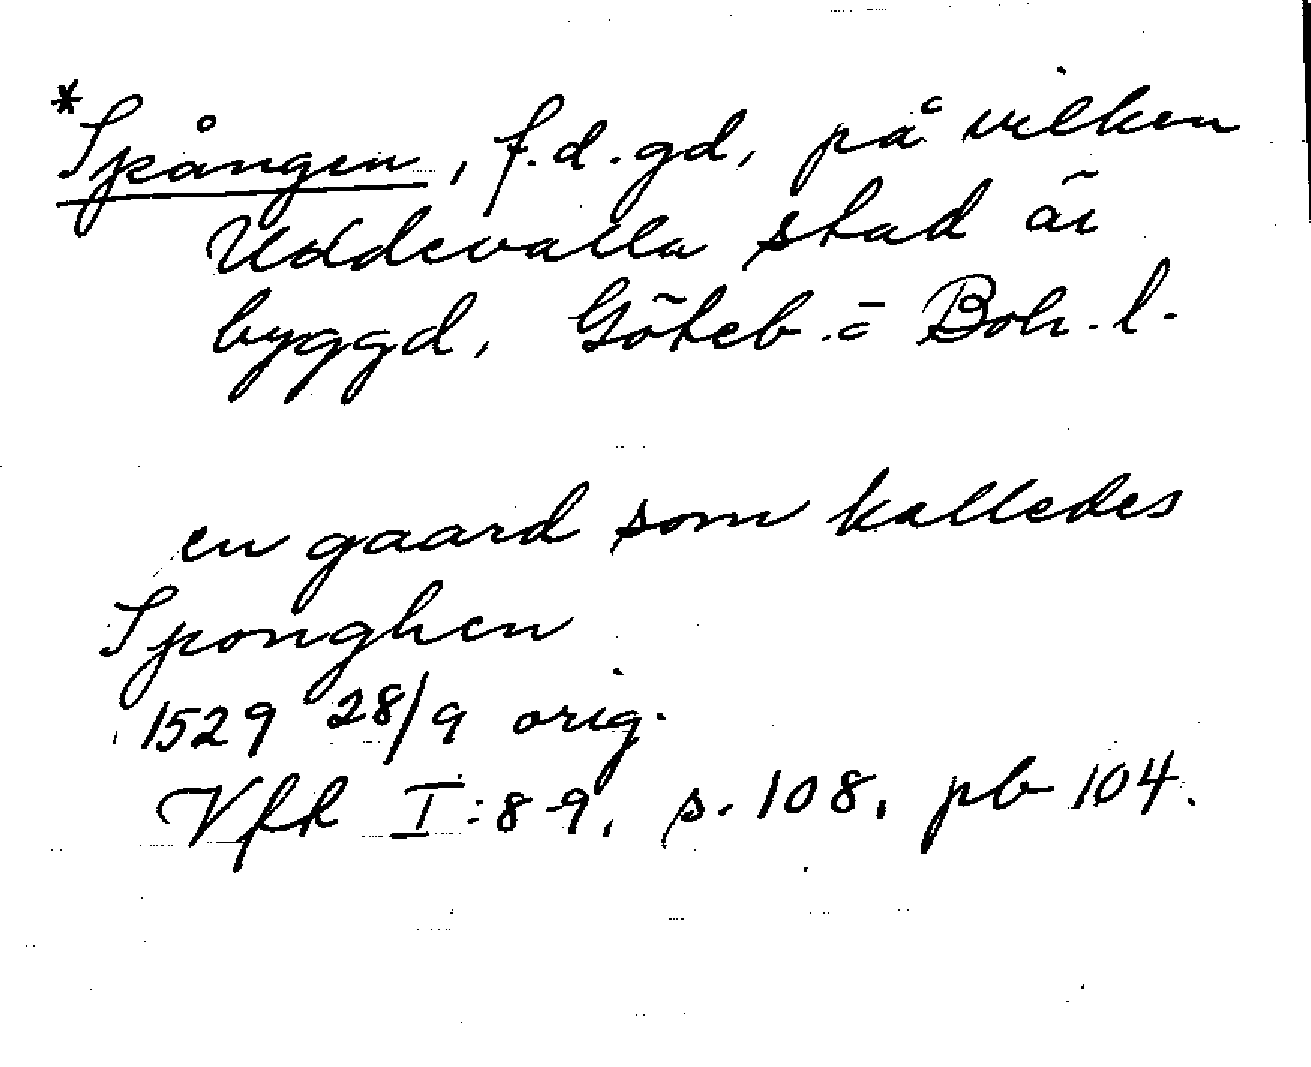 *Spången, f.d. gd, på vilken
Uddevalla stad är
byggd, Göteb.= Boh. l.
en gaard som kalledes
Sponghen
1529 28/9 orig.
Vfh I:8-9, s. 108, pb 104.